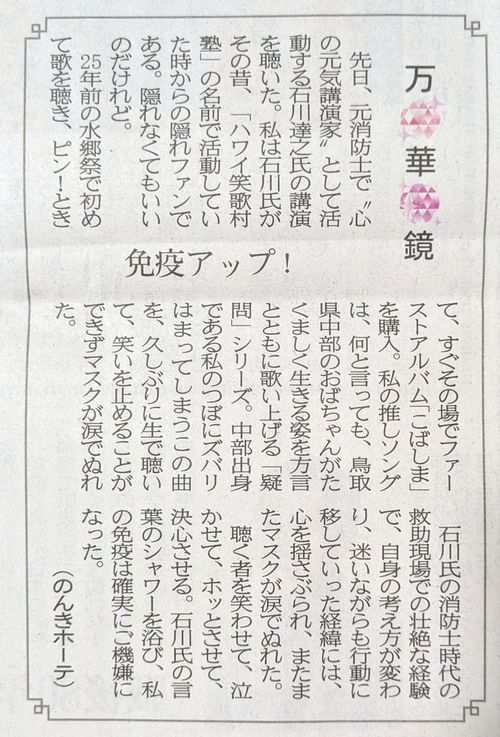 万華鏡
免疫アップ!
先日、元消防士で〝心
の元気講演家〟として活
動する石川達之氏の講演
を聴いた。私は石川氏が
その昔、「ハワイ笑歌村
塾」の名前で活動してい
た時からの隠れファンで
ある。隠れなくてもいい
のだけれど。
25年前の水郷祭で初め
て歌を聴き、ピン!とき
て、すぐその場でファー
ストアルバム「こばしま」
を購入。私の推しソング
は、何と言っても、鳥取
県中部のおばちゃんがた
くましく生きる姿を方言
とともに歌い上げる「疑
問」シリーズ。中部出身
である私のつぼにズバリ
はまってしまうこの曲
を、久しぶりに生で聴い
て、笑いを止めることが
できずマスクが涙でぬれ
た。
石川氏の消防士時代の
救助現場での壮絶な経験
で、自身の考え方が変わ
り、迷いながらも行動に
移していった経緯には、
心を揺さぶられ、またま
たマスクが涙でぬれた。
聴く者を笑わせて、泣
かせて、ホッとさせて、
決心させる。石川氏の言
葉のシャワーを浴び、私
の免疫は確実にご機嫌に
なった。
(のんきホーテ)